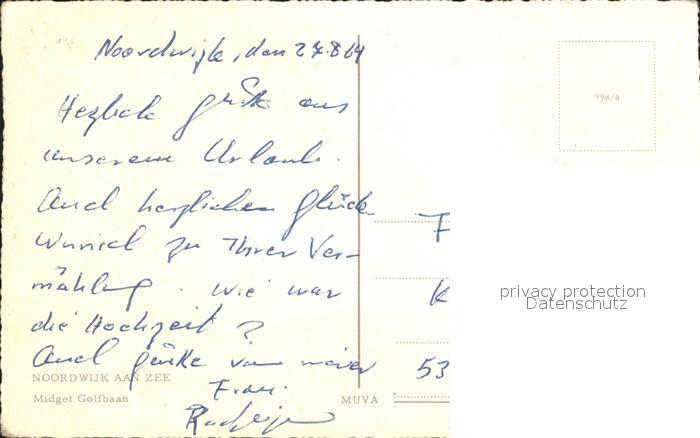 Noordwijk, den 27.8.64
Herzliche Grüße aus
unserem Urlaub.
Auch herzlichen Glück-
wunsch zu Ihrer Ver-
mählung. Wie war
die Hochzeit?
Auch Grüße von meiner
Frau.
998/8
F
K
53
privacy protection
Datenschutz
NOORDWIJK AAN ZEE
Midget Golfbaan
MUVA